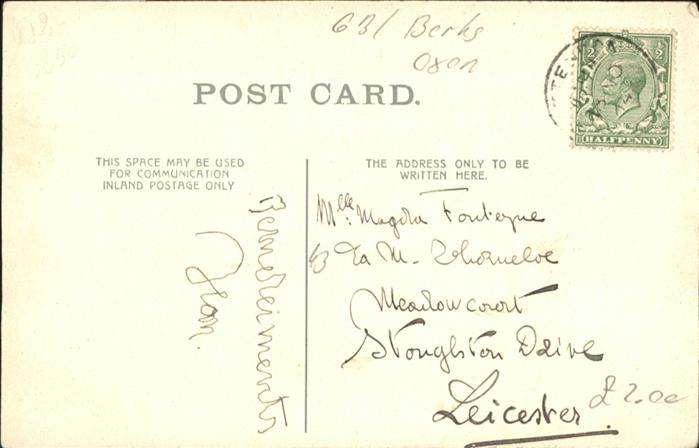 63/ Berks
Oxon
POST CARD.
THIS SPACE MAY BE USED
FOR COMMUNICATION
INLAND POSTAGE ONLY
THE ADDRESS ONLY TO BE
WRITTEN HERE.
HALFPENNY
Jean.
Mlle: Magda Fonteyne
Meadowcourt
Stoughton Drive
Leicester.
£2.00